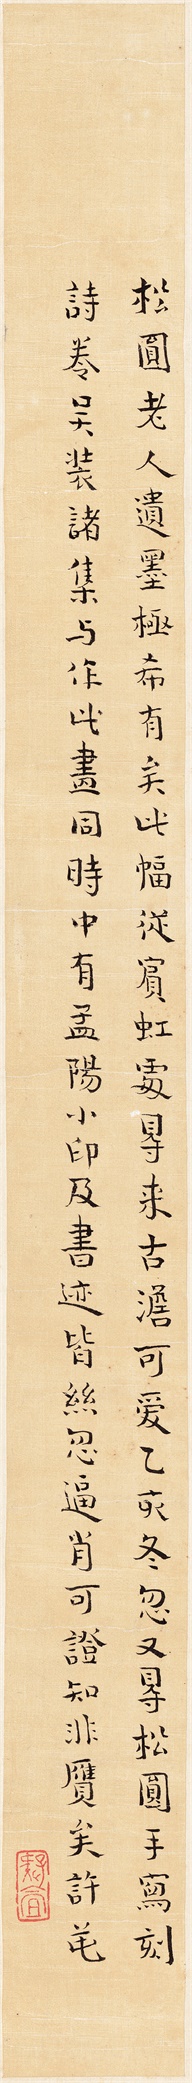 松圓老人遺墨極希有矣此幅從賓虹處㝵来古澹可爱乙亥冬忽又㝵松圓手寫刻
詩卷吴装諸集与作此畫同時中有孟陽小印及書迹皆絲忽逼肖可證知非贋矣許芚
疑盦